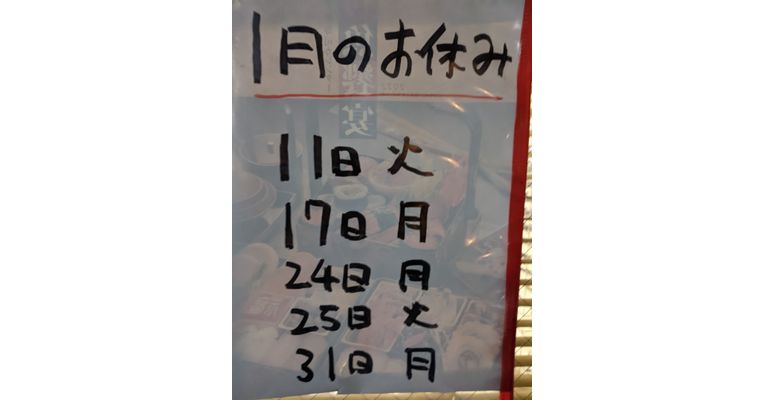 1月のお休み
11日 火
17日 月
24日 月
25日 火
31日 月